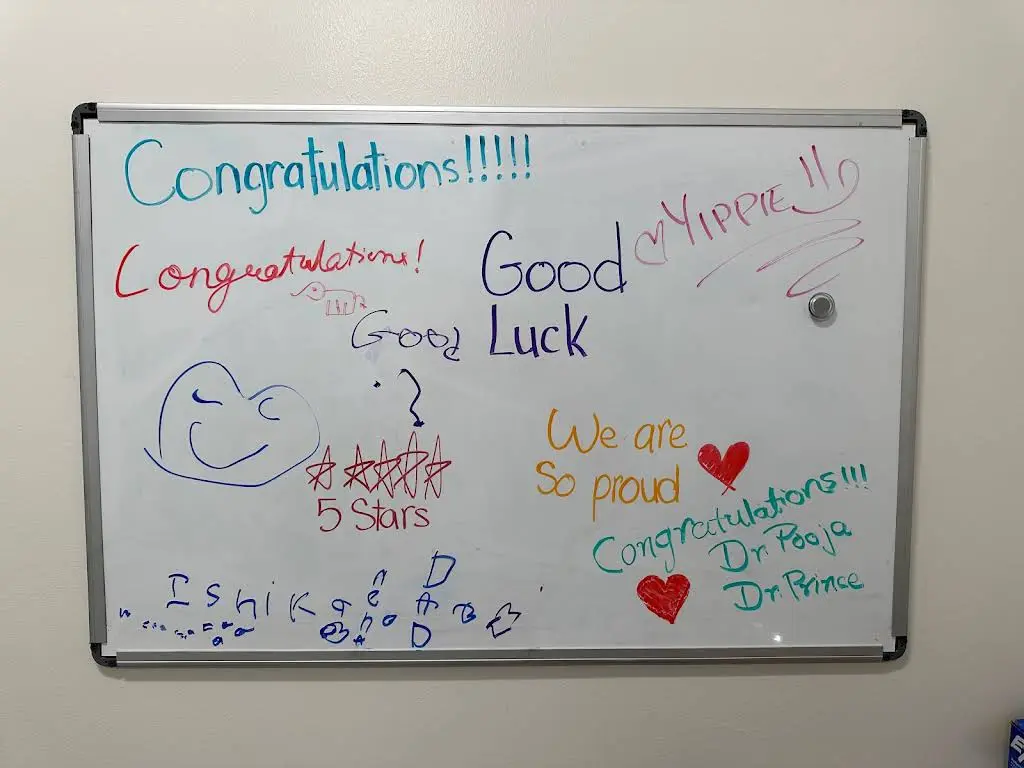 Congratulations!!!!!
YIPPIE!!
Congratulations!
Good
Luck
Good
?
We are
So proud
5 Stars
Congratulations!!!
Dr. Pooja
Dr. Prince
Ishika
DAD